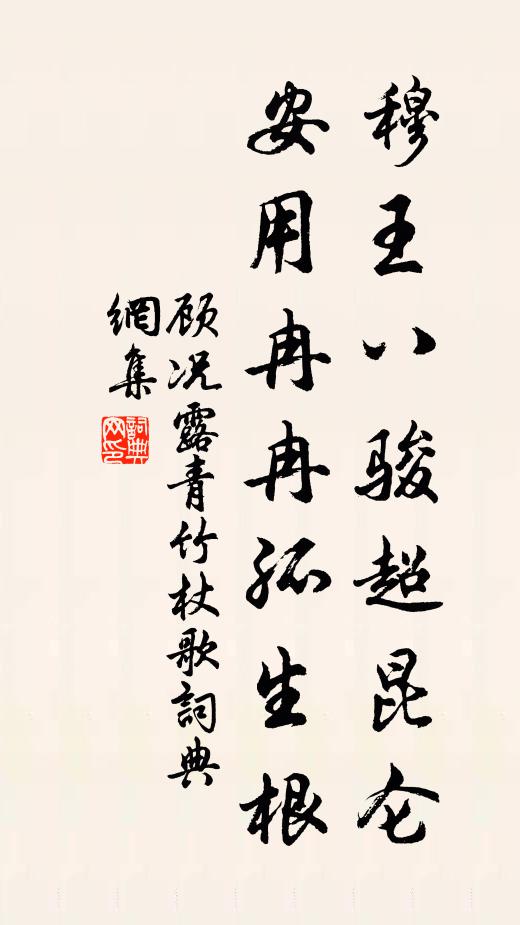 穆王八骏超昆仑
安用冉冉孤生根
顾况露青竹杖歌詞典
網集
詞典
网印